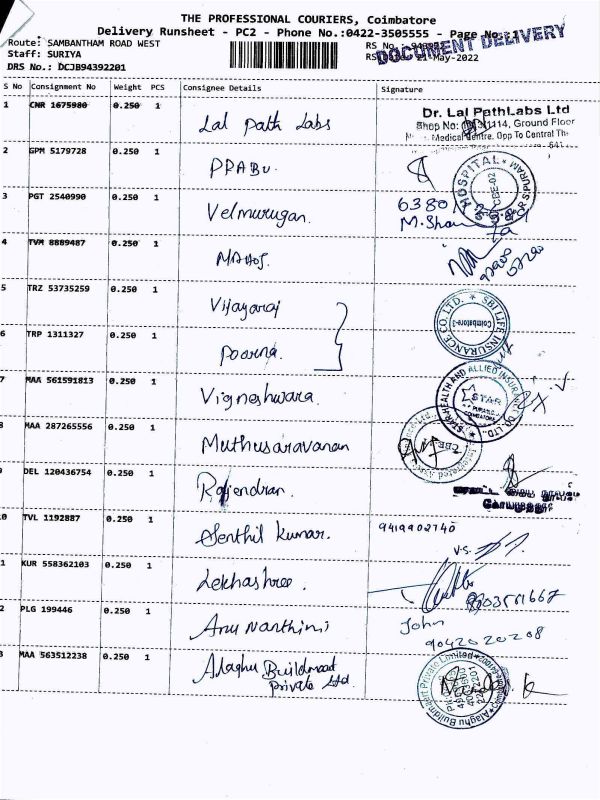 THE PROFESSIONAL COURIERS, Coimbatore
Delivery Runsheet - PC2 - Phone No.:0422-3505555 - Page No.:1
DOCUMENT DELIVERY
Route: SAMBANTHAM ROAD WEST
Staff: SURIYA
DRS No.: DCJB94392201
RS No.:
21-May-2022
S No Consignment No Weight PCS Consignee Details Signature
1 CNR 1675980 0.250 1 Lal Path Labs
Dr. Lal PathLabs Ltd
Shop No: 1114, Ground Floor
Medical Centre. Opp To Central Th
641
2 GPM 5179728 0.250 1 PRABU.
HOSPITAL R.S.PURAM CBE-02
3 PGT 2540990 0.250 1 Velmurugan.
4 TVM 8889487 0.250 1
5 TRZ 53735259 0.250 1 Vijayaraj
SBI LIFE INSURANCE CO.LTD. Coimbatore-3
6 TRP 1311327 0.250 1 Poorna.
7 MAA 561591813 0.250 1 Vigneshwara.
STAR HEALTH AND ALLIED INSURANCE CO. LTD. STAR
8 MAA 287265556 0.250 1 Muthusaravanan
9 DEL 120436754 0.250 1 Rajendran.
10 TVL 1192887 0.250 1 Senthil Kumar. 9419902740
V.S.
11 KUR 558362103 0.250 1 Lekhashree.
12 PLG 199446 0.250 1 Anu Nanthini John
9042020208
13 MAA 563512238 0.250 1 Alaghu Buildmart
Private Ltd.
Alaghu Buildmart Private Limited